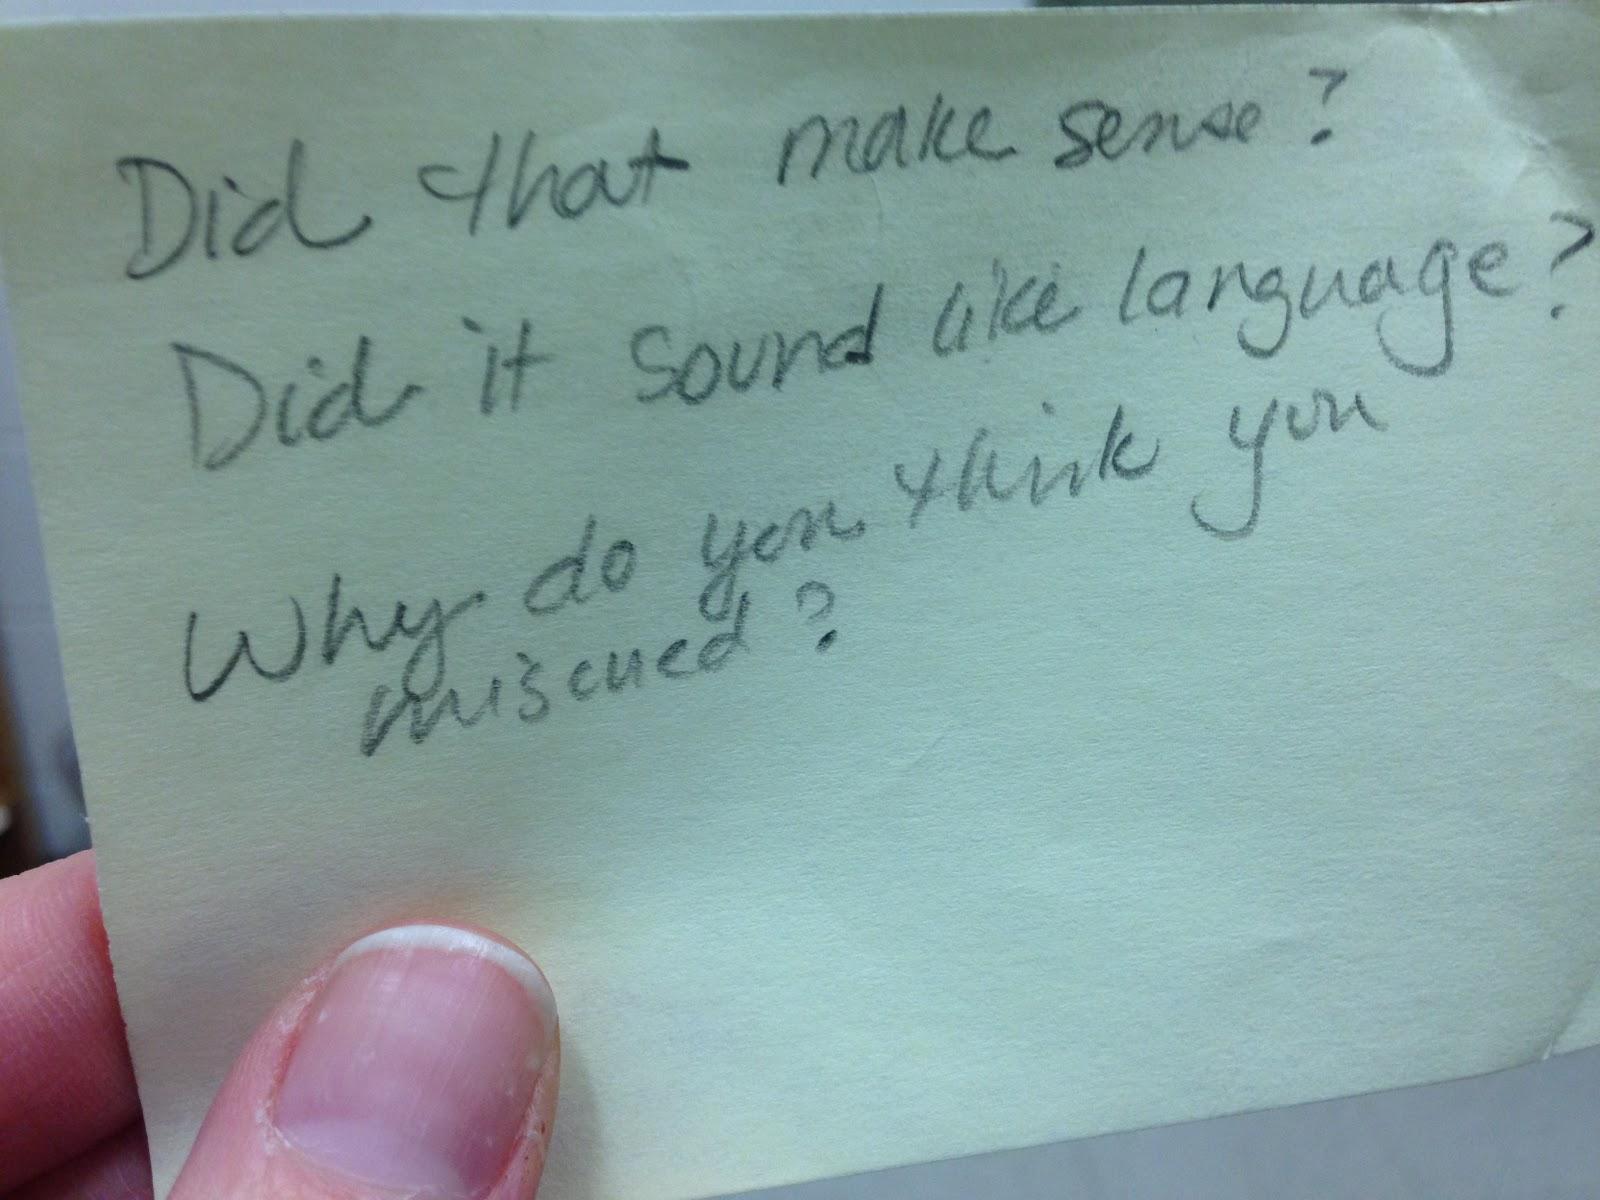 Did that make sense?
Did it sound like language?
Why do you think you
miscued?